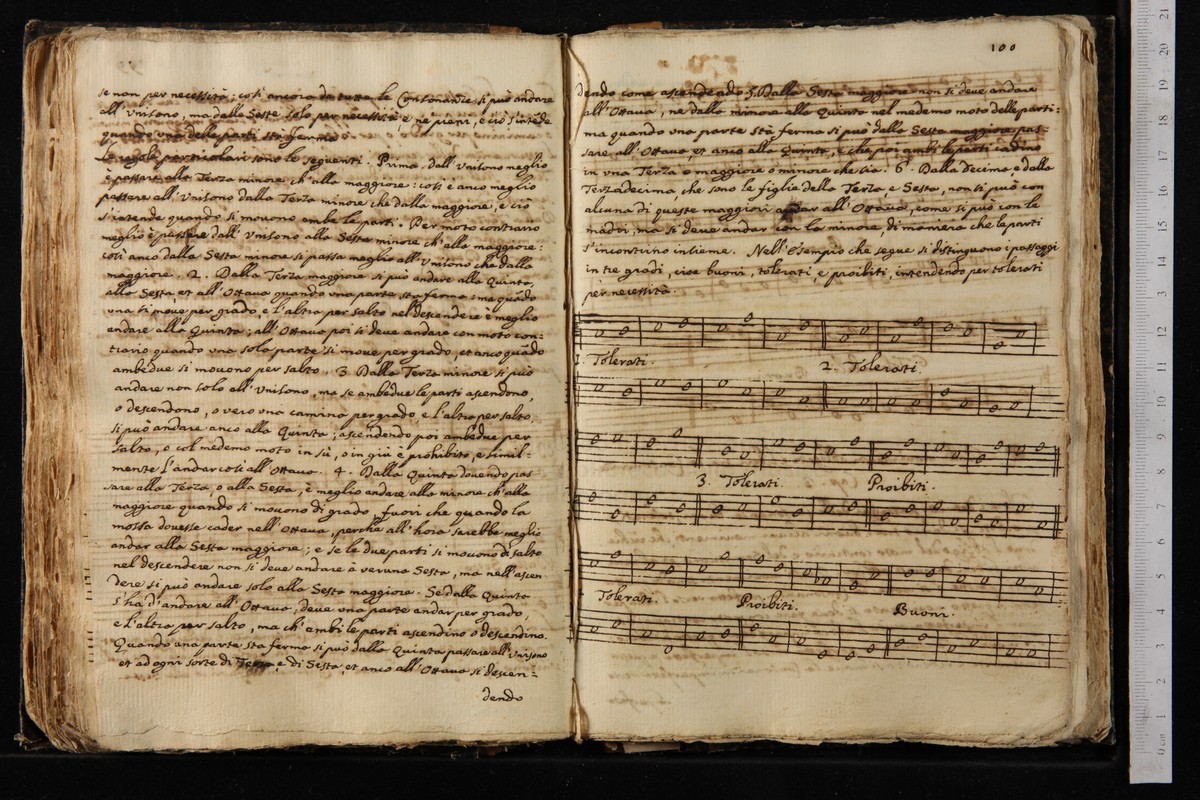 se non per necessità; così ancora da tutte le Consonanze si può andare
all' Unisono, ma dalle Seste solo per necessità, e ne pieni, e ciò s'intēde
quando una delle parti stà ferma.
Le regole particolari sono le seguenti. Prima. dall' Unisono meglio
è passare alla Terza minore ch' alla maggiore: così è anco meglio
passare all' Unisono dalla Terza minore che dalla maggiore, e ciò
s'intende quando si mouono ambe le parti. Per moto contrario
meglio è passare dall' Unisono alla Sesta minore ch' alla maggiore:
così anco dalla Sesta minore si passa meglio all' Unisono che dalla
maggiore. 2. Dalla Terza maggiore si può andare alla Quinta,
alla Sesta, et all' Ottaua quando una parte sta ferma: ma quādo
una si moue per grado, e l'altra per salto nel descendere è meglio
andare alla Quinta; all' Ottaua poi si deue andare con moto con=
trario quando una sola parte si moue per grado, et anco quādo
ambedue si mouono per salto. 3 Dalla Terza minore si può
andare non solo all' Unisono, ma se ambedue le parti ascendono,
o descendono, o vero una camina per grado, e l'altra per salto,
si può andare anco alla Quinta; ascendendo poi ambedue per
salto, e col medemo moto in sù, o in giù è prohibito, e simil=
mente l'andar così all' Ottaua. 4. Dalla Quinta douendo pas=
sare alla Terza, o alla Sesta, è meglio andare alla minore ch' alla
maggiore quando si mouono di grado, fuori che quando la
mossa douesse cader nell' Ottaua, perche all' hora sarebbe meglio
andar alla Sesta maggiore; e se le due parti si mouono di salto
nel descendere non si deue andare à veruna Sesta, ma nell' ascen
dere si può andare solo alla Sesta maggiore. Se dalla Quinta
s'hà d'andare all' Ottaua, deue una parte andar per grado,
e l'altra per salto, ma ch' ambi le parti ascendino o descendino.
Quando una parte sta ferma si può dalla Quinta passare all' Unisono
et ad ogni sorte di Terza e di Sesta, et anco all' Ottaua sì descen=
dendo
100
dendo come ascendendo 5. Dalla Sesta maggiore non si deue andare
all' Ottaua, ne dalla minore alla Quinta nel medemo moto delle parti:
ma quando una parte stà ferma si può dalla Sesta maggiore pas=
sare all' Ottaua, et anco alla Quinta, e che poi ambi le parti cadino
in una Terza o maggiore o minore che sia. 6. Dalla Decima, e dalla
Terzadecima, che sono le figlie della Terza e Sesta, non si può con
alcuna di queste maggiori andar all' Ottaua, come si può con le
madri, ma si deue andar con la minore di maniera che le parti
s'incontrino insieme. Nell' esempio che segue si distinguono i passaggi
in tre gradi, cioe buoni, tolerati, e proibiti, intendendo per tolerati
per necessità.
1. Tolerati. 2. Tolerati.
3. Tolerati. Proibiti.
Tolerati. Proibiti. Buoni.